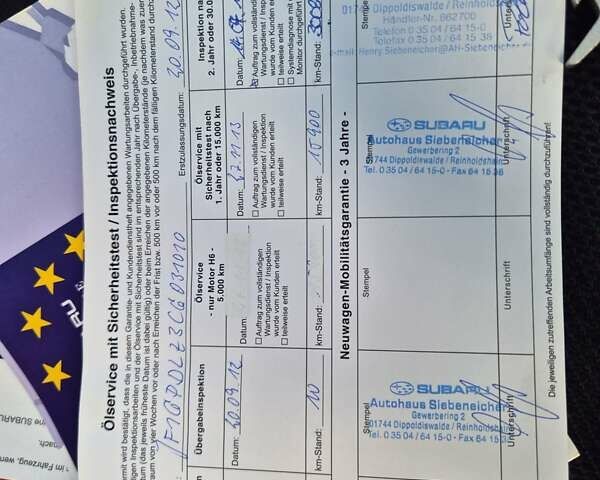 Ölservice mit Sicherheitstest / Inspektionsnachweis
ermit wird bestätigt, dass die in diesem Garantie- und Kundendienstheft angegebenen Wartungsarbeiten durchgeführt wurden.
igen Inspektionsarbeiten und der Ölservice mit Sicherheitstest sind im entsprechenden Jahr nach Übergabe-, Inbetriebnahme-
tum (das jeweils früheste Datum ist dabei gültig) oder beim Erreichen der angegebenen Kilometerstände (je nachdem was zuer
raum von vier Wochen vor oder nach Erreichen der Frist bzw. 500 km vor oder 500 km nach dem fälligen Kilometerstand durch
Erstzulassungsdatum: 20.09.12
Übergabeinspektion
Datum: 20.09.12
km-Stand: 10
Ölservice
- nur Motor H6 -
5.000 km
Datum:
Auftrag zum vollständigen
Wartungsdienst / Inspektion
wurde vom Kunden
teilweise erteilt
km-Stand:
Ölservice mit
Sicherheitstest nach
1. Jahr oder 15.000 km
Datum:
Auftrag zum vollständigen
Wartungsdienst / Inspektion
wurde vom Kunden erteilt
teilweise erteilt
km-Stand: 15900
Inspektion na
2. Jahr oder 30.0
Datum:
Auftrag zum vollständ
Wartungsdienst / Insp
wurde vom Kunden er
teilweise erteilt
Systemdiagnose mit
Monitor durchgeführt
km-Stand:
Neuwagen-Mobilitätsgarantie - 3 Jahre -
Stempel
SUBARU
Autohaus Siebeneicher
Gewerbering 2
01744 Dippoldiswalde / Reinholdshain
Tel. 0 35 04 / 64 15-0 - Fax 64 15
Unterschrift
Stempel
Unterschrift
Stempel
SUBARU
Autohaus Siebeneicher
Gewerbering 2
01744 Dippoldiswalde / Reinholdshain
Tel. 0 35 04 / 64 15-0 - Fax 64 15 38
Unterschrift
Stempel
01744 Dippoldiswalde / Reinholdshain
Händler-Nr. 662700
Telefon 0 35 04 / 64 15-0
Telefax 0 35 04 / 64 15 38
e-mail: Henry.Siebeneicher@AH-Siebeneicher
Die jeweiligen zutreffenden Arbeitsumfänge sind vollständig durchzuführen!
ne SUBARU
nach.
im Fahrzeug, wen